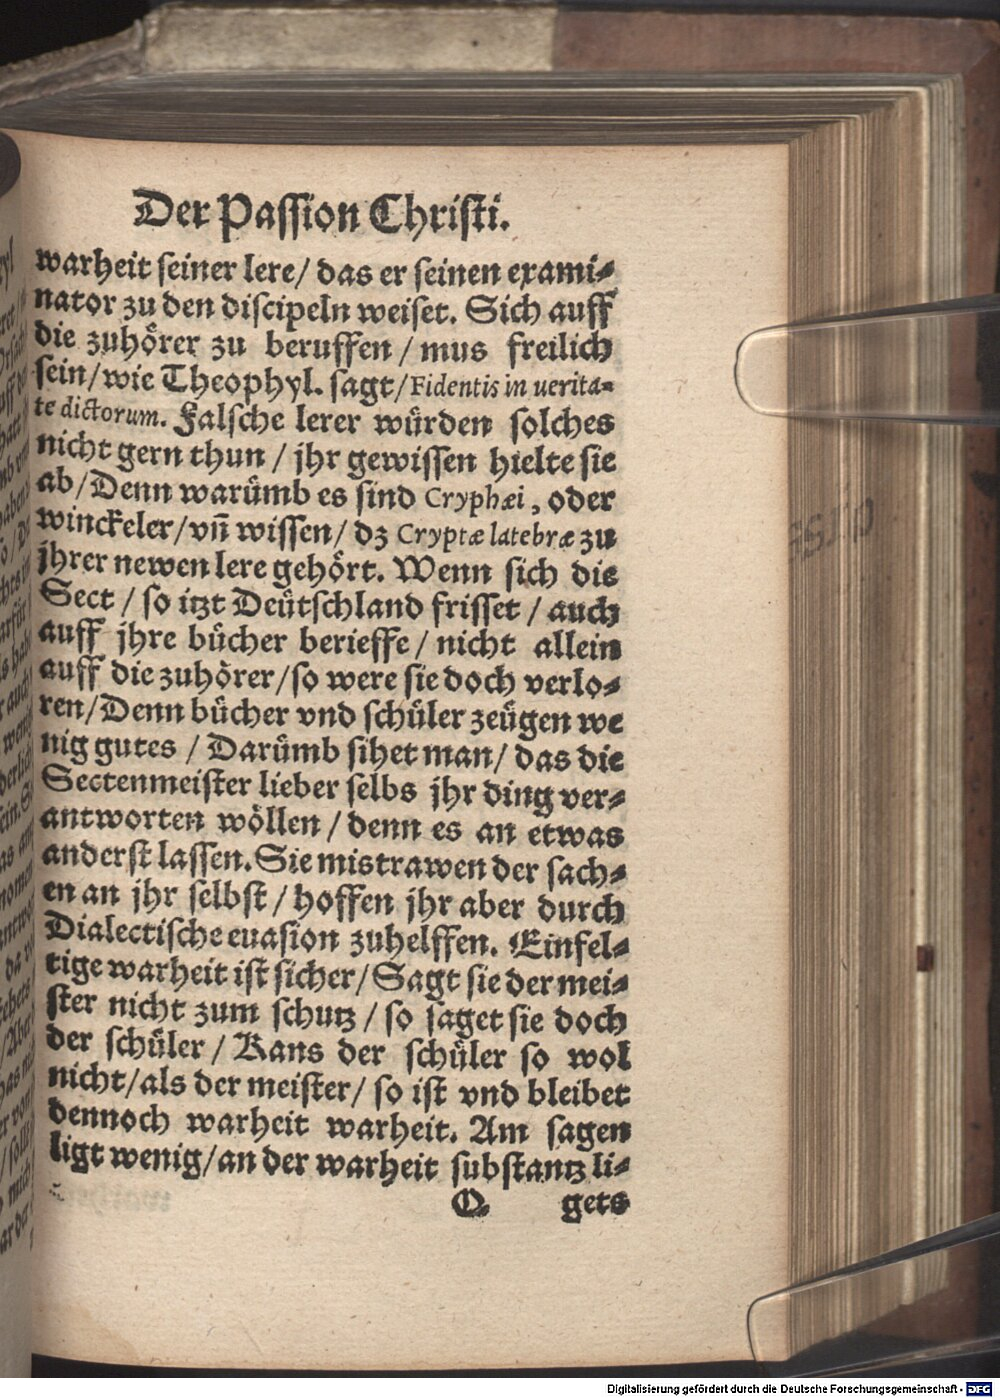 Der Passion Christi.
warheit seiner lere/ das er seinen exami⸗
nator zu den discipeln weiset. Sich auff
die zuhörer zu beruffen / mus freilich
sein/wie Theophyl. sagt/Fidentis in uerita⸗
te dictorum. Falsche lerer würden solches
nicht gern thun / jhr gewissen hielte sie
ab/Denn warümb es sind Cryphæi, oder
winckeler/vñ wissen/ dz Cryptæ latebræ zu
jhrer newen lere gehört. Wenn sich die
Sect / so itzt Deütschland frisset / auch
auff jhre bücher berieffe / nicht allein
auff die zuhörer/so were sie doch verlo⸗
ren/Denn bücher vnd schüler zeügen we
nig gutes / Darümb sihet man/ das die
Sectenmeister lieber selbs jhr ding ver⸗
antworten wöllen / denn es an etwas
anderst lassen. Sie mistrawen der sach⸗
en an jhr selbst / hoffen jhr aber durch
Dialectische euasion zuhelffen. Einfel⸗
tige warheit ist sicher/Sagt sie der mei⸗
ster nicht zum schutz / so saget sie doch
der schüler / Kans der schüler so wol
nicht/als der meister/ so ist vnd bleibet
dennoch warheit warheit. Am sagen
ligt wenig/an der warheit substantz li⸗
O. gets
Digitalisierung gefördert durch die Deutsche Forschungsgemeinschaft - DFG